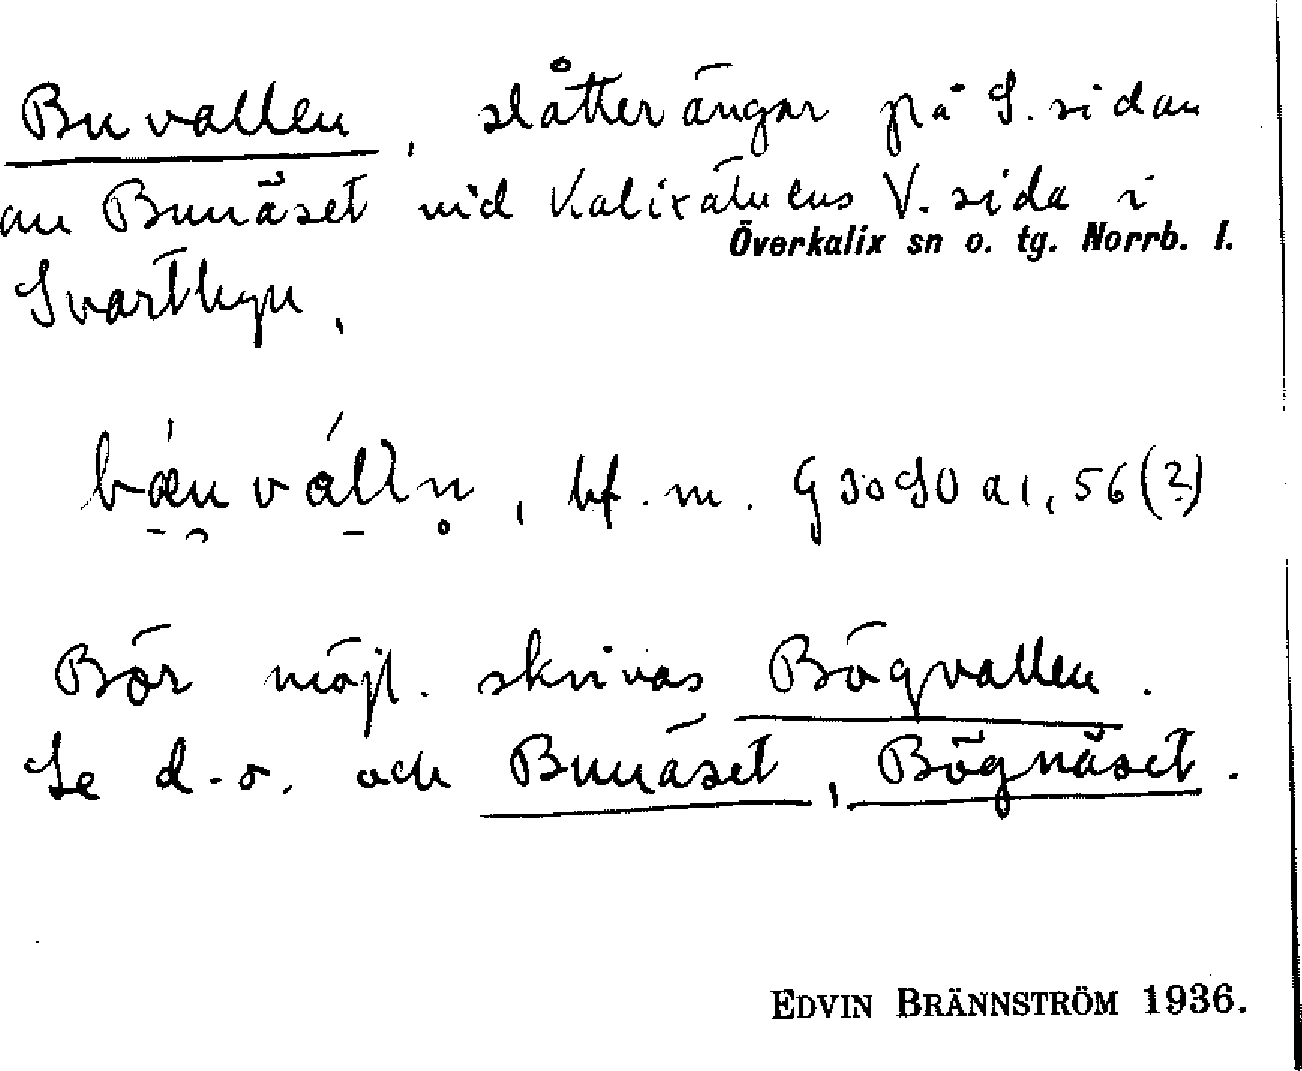 Buvallen, slåtterängar på S. sidan
av Bunäset vid Kalixälvens V. sida i
Överkalix sn o. tg. Norrb. l.
Svartbyn.
bf. m.
Bör möjl. skrivas Bögvallen.
Se d.o. och Bunäset, Bögnäset.
EDVIN BRÄNNSTRÖM 1936.